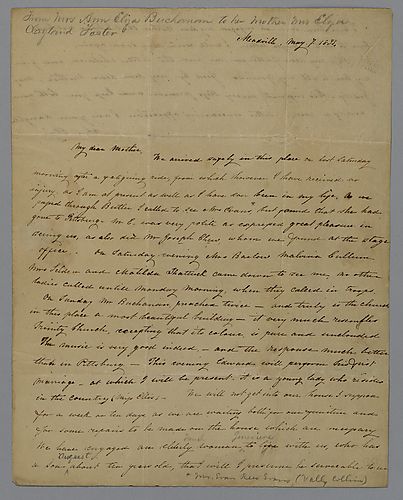 From Mrs Ann Eliza Buchanan to her Mother Mrs Eliza
Clayland Foster
Meadville, May 7. 183
My dear Mother,
We arrived safely in this place on last Saturday
morning after a fatiguing ride, from which however I have received no
injury, as I am at present as well as I have ever been in my life. As we
passed through Butler I called to see Mrs Evans, but found that she had
gone to Pittsburg. Mr E. was very polite and expressed great pleasure in
seeing us, as also did Mr Joseph whom we found at the stage
office. On Saturday evening Mrs Barlow Malvina Cullum
Mrs Selden and Matilda Shattuck came down to see me, no other
ladies called until Monday Morning, when they called in troops.
On Sunday Mr Buchanan preached twice – and truly is the church
in this place a most beautiful building – it very much resembles
Trinity Church, excepting that its colour is pure and unclouded.
The music is very good indeed – and the response much better
than in Pittsburg – This evening Edward will perform his first
marriage – at which I will be present. it is a young lady who resides
in the country (Miss Cless) – We will not get into our house I suppose
for a week or ten days as we are waiting both for our furniture and
for some repairs to be made on the house which are necessary
We have engaged an elderly woman to live with us, who has
a son, about ten years old, that will I presume be serviceable to us
* Mrs. Evan Rees Evans (Vally Collins)